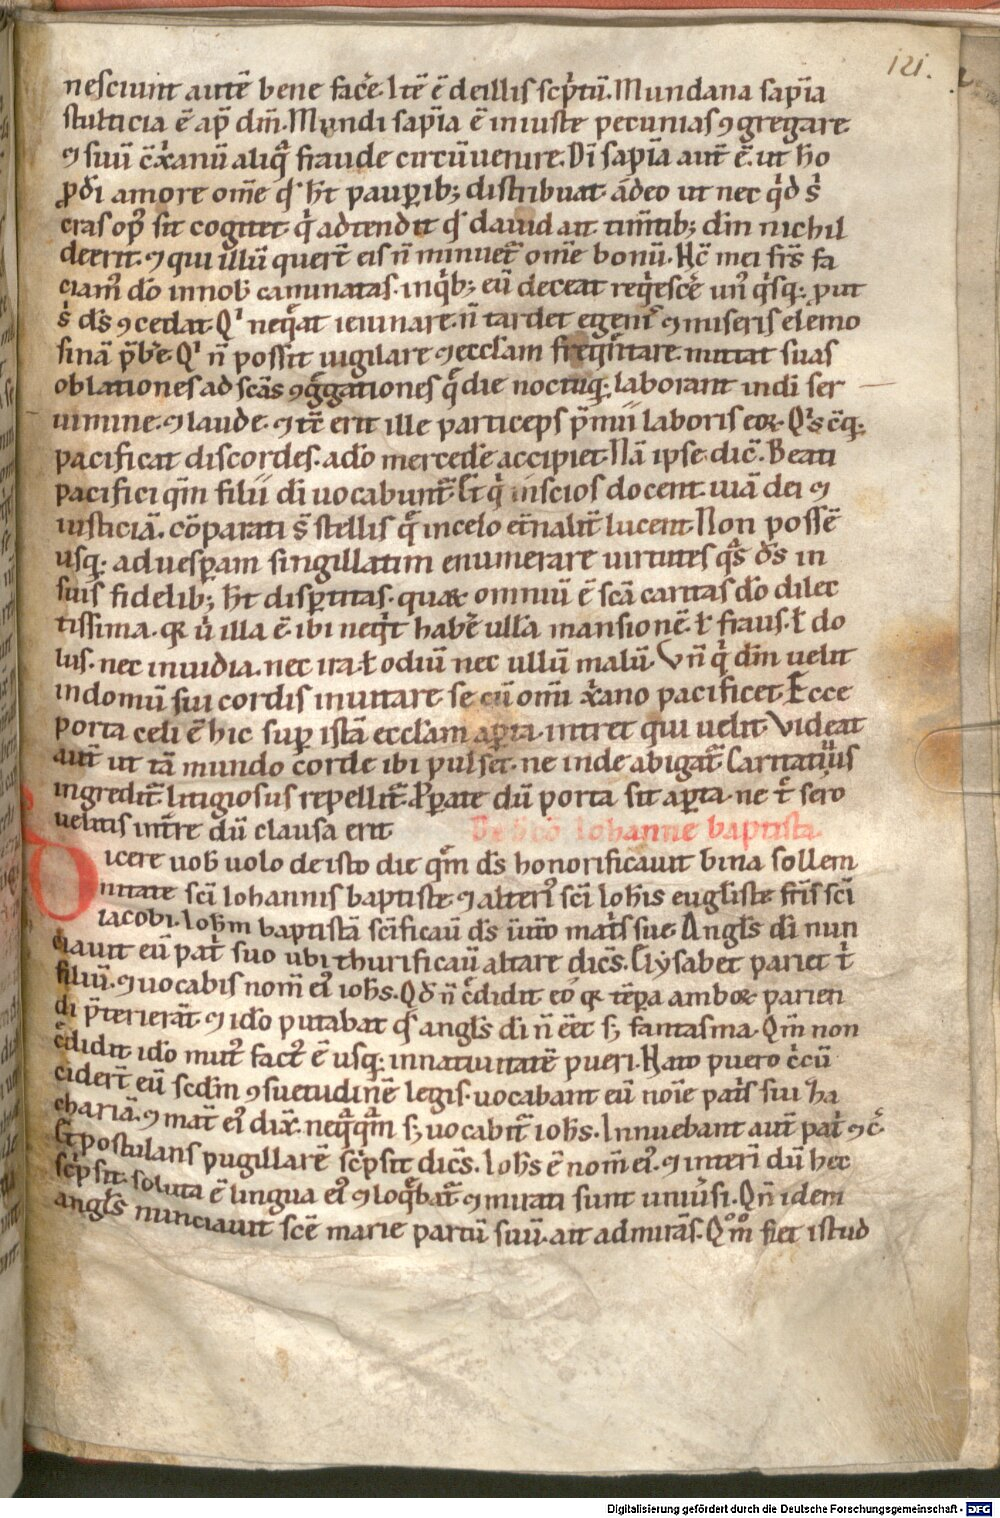 121.
nesciunt autē bene fac̄e. Itē ē de illis sc͛ptū. Mundana sap̄ia
stulticia ē ap̄ dm̄. Mundi sap̄ia ē iniuste pecunias ꝯgregare
⁊ suū c̄xanū aliq̄ fraude circūuenire. Dī sap̄ia aut̄ ē. ut h̄o
ꝓ dī amore om̄e qd̓ h̄t paup̱ib; distribuat. ādeo ut nec qͥd sͥ
cras opꝰ sit cogitet. qͥ adtendit qd̓ dauid ait. tim̄tib; dm̄ nichil
deerit. ⁊ qui illū quer̄t eis n̄ minuet̄ om̄e bonū. Hc̄ mei fr̄s fa
ciamꝰ dō in nob̓ caminatas. in qͥb; eū deceat reqͥescē̓ unꝰqͥsq;. ꝓut
sͥ ds̄ ꝯcedat. Qͥ neq̄at ieiunare. n̄ tardet egenīs ⁊ miseris elemo
sinā p̄b̓e. Qͥ n̄ possit uigilare ⁊ eccl̓am freqͥntare. mittat suas
oblationes ad scās ꝯgͣgationes qͥ die noctuq;. laborant in dī ser
uimine. ⁊ laude. ⁊ tc̄ erit ille particeps p̄mii laboris eoꝝ. Qͥs c̄q;.
pacificat discordes. a dō mercedē accipiet. Nā ipse dic̄. Beati
pacifici qm̄ filii dī uocabunt̄. Et qͥ inscios docent uiā dei ⁊
iusticiā. cōparati s̄ stellis qͥ in celo et̄nalit̄ lucent. Non possē
usq;. ad uesꝑam singillatim enumerare uirtutes qͣs d̄s in
suis fidelib; h̄t disꝑtitas. quaꝝ omniū ē scā caritas dō dilec
tissima. qꝛ uͥ illa ē. ibi neqͥt habē ulla mansionē. ł fraus. ł do
lus. nec inuidia. nec ira. ł odiū nec ullū malū. Vn̄ qͥ dm̄ uelit
in domū sui cordis inuitare se cū omī xano pacificet. Ecce
porta celi ē hic suꝑ istā eccl̓am aꝑta. intret qui uelit. Videat
aut̄ ut tā mundo corde ibi pulset. ne inde abigat̄. Caritatiuus
ingredit̄. litigiosus repellit̄. Pꝑate dū porta sit aꝑta. ne t̄ sero
uelitis int̄re dū clausa erit
De sc̄o Iohanne baptista.
Dicere uob̓ uolo de isto die qm̄ ds̄ honorificauit bina sollem
nitate scī Iohannis baptiste. ⁊ alteriꝰ scī Ioh̄is eugl̓iste fr̄is scī
iacobi. Ioh̄m baptistā scīficaū ds̄ in utͦo mat̓s sue. Angl̓s dī nun
ciauit eū patͥ suo ubi thurificaū altare dic̄s. Elysabet pariet t̄
filiū. ⁊ uocabis nom̄ eiꝰ ioh̄s. Qd̓ n̄ c̄didit eo qꝛ tēpa amboꝝ parien
di p̄terierāt ⁊ idō putabat qd̓ angl̓s dī n̄ eēt s; fantasma. Qm̄ non
c̄didit idō mutꝰ factꝰ ē usq;. in natiuitatē pueri. Nato puero c̄cū
ciderr̄t eū scdm̄ ꝯsuetudinē legis. uocabant eū noīe pat̓s sui za
chariā. ⁊ mat̄ eiꝰ dix̄. neqͣqͣm s; uocabit̄ ioh̄s. Innuebant aut̄ patͥ ⁊ c̄
st̄ postulans pugillarē sc͛psit dic̄s. Ioh̄s ē nom̄ eiꝰ. ⁊ interī dū hec
sc͛psit. soluta ē lingua eiꝰ ⁊ loqͣbat̄. ⁊ mirati sunt uniūsi. Qn̄ idem
angl̓s nunciauit scē marie partū suū. ait admirās. Qͦmͦ fiet istud
Digitalisierung gefördert durch die Deutsche Forschungsgemeinschaft - DFG